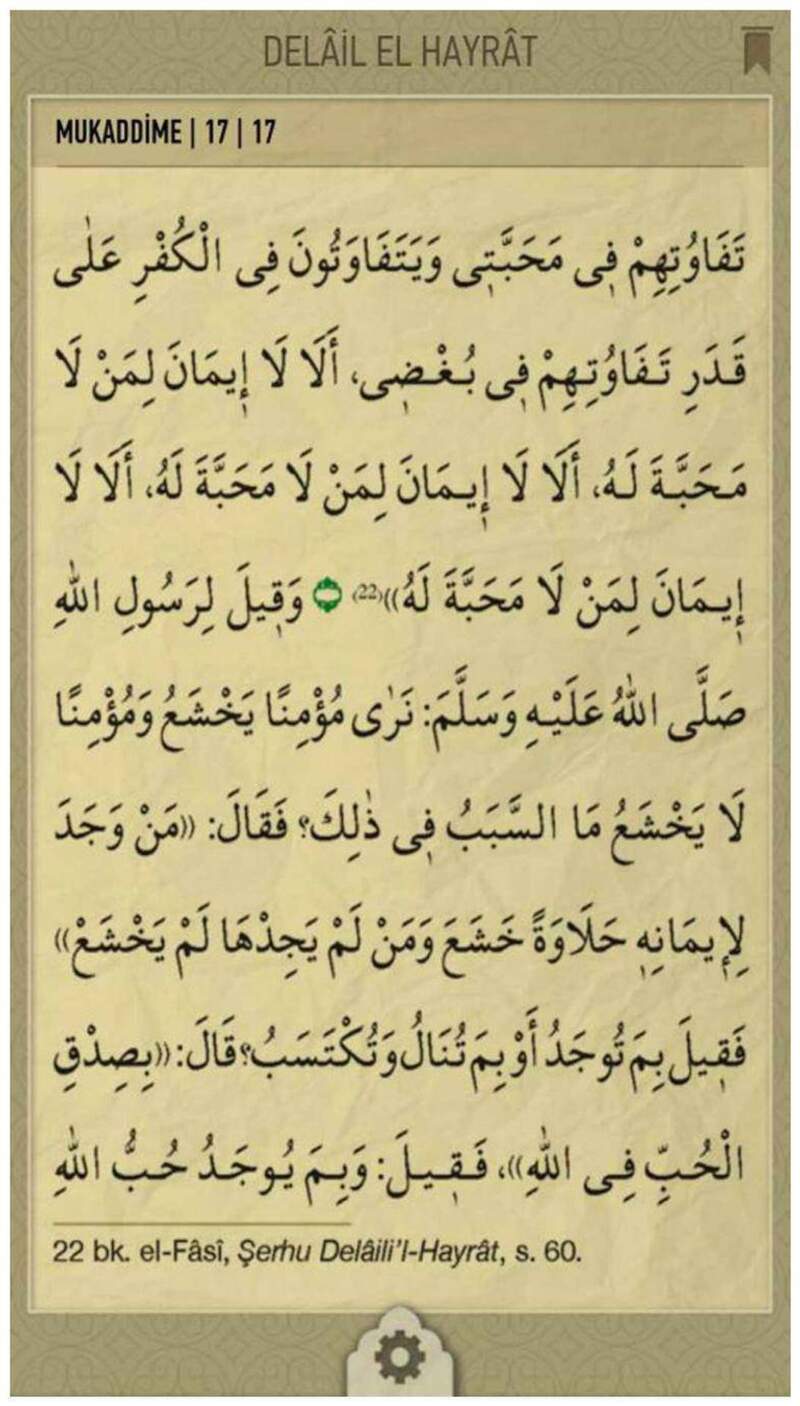 DELÂİL EL HAYRÂT
MUKADDİME | 17 | 17
تَفَاوُتِهِمْ فِي مَحَبَّتِي وَيَتَفَاوَتُونَ فِى الْكُفْرِ عَلٰى
قَدَرِ تَفَاوُتِهِمْ فِي بُغْضِي، أَلَا لَا إِيمَانَ لِمَنْ لَا
مَحَبَّةَ لَهُ، أَلَا لَا إِيمَانَ لِمَنْ لَا مَحَبَّةَ لَهُ، أَلَا لَا
إِيمَانَ لِمَنْ لَا مَحَبَّةَ لَهُ»(22) وَقِيلَ لِرَسُولِ اللهِ
صَلَّى اللهُ عَلَيْهِ وَسَلَّمَ: نَرٰى مُؤْمِنًا يَخْشَعُ وَمُؤْمِنًا
لَا يَخْشَعُ مَا السَّبَبُ فِي ذٰلِكَ؟ فَقَالَ: «مَنْ وَجَدَ
لِإِيمَانِهِ حَلَاوَةً خَشَعَ وَمَنْ لَمْ يَجِدْهَا لَمْ يَخْشَعْ»
فَقِيلَ بِمَ تُوجَدُ أَوْ بِمَ تُنَالُ وَتُكْتَسَبُ؟ قَالَ: «بِصِدْقِ
الْحُبِّ فِى اللهِ»، فَقِيلَ: وَبِمَ يُوجَدُ حُبُّ اللهِ
22 bk. el-Fâsî, Şerhu Delâili’l-Hayrât, s. 60.